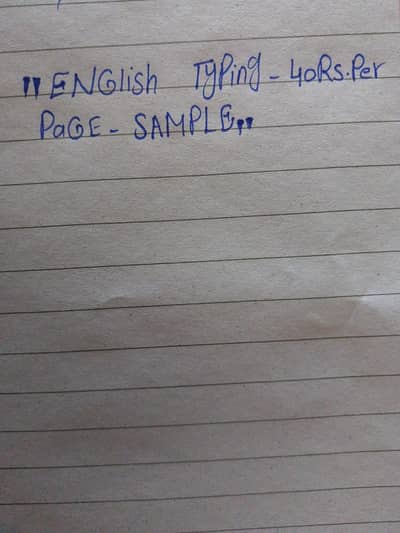 "ENGlish TyPing - 40Rs.Per
PaGE - SAMPLE"